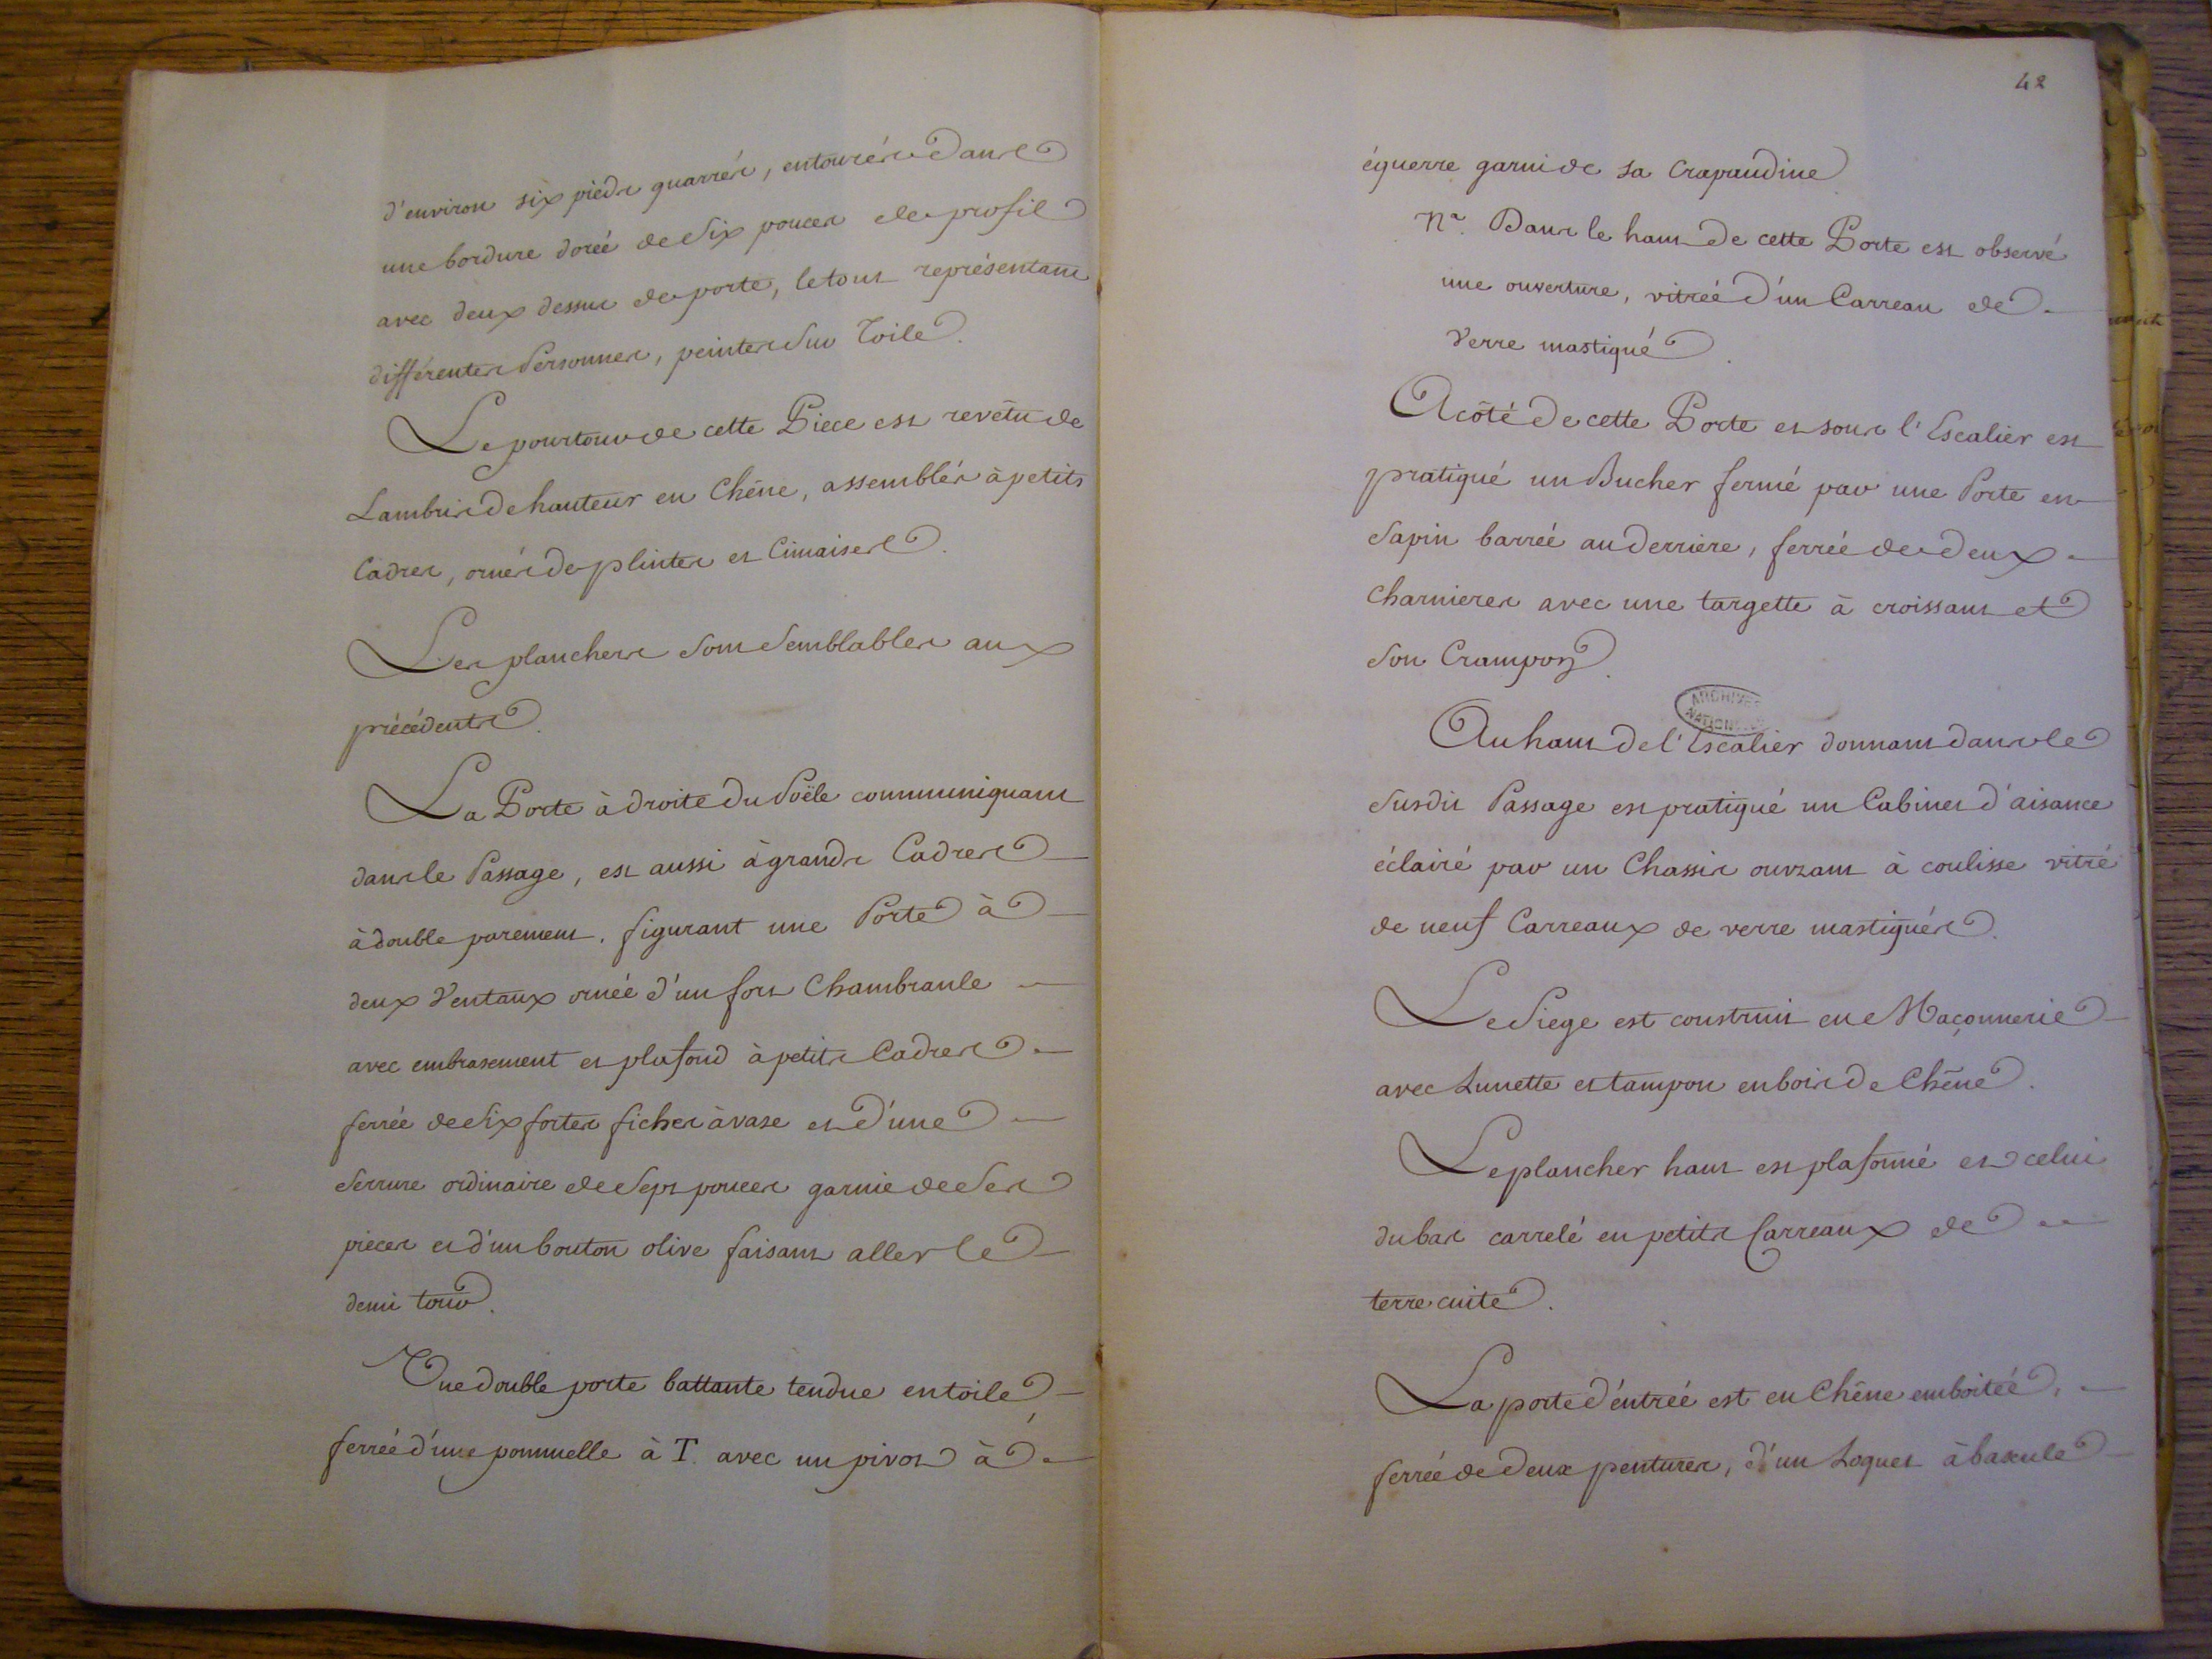 d'environ six pieds quarrés, entourés dans
une bordure dorée de Six pouces de profil
avec deux dessus de porte, le tout représentant
différentes Personnes, peintes Sur Toile.
Le pourtour de cette Piece est revêtu de
Lambris de hauteur en Chêne, assemblés à petits
Cadres, ornés de plintes et Cimaises.
Les planchers Sont Semblables aux
précédents.
La Porte à droite du Poële communiquant
dans le Passage, est aussi à grands Cadres
à double parement. figurant une Porte à
deux Ventaux ornée d'un fort Chambranle
avec embrasement et plafond à petits Cadres
ferrée de Six fortes fiches à vase et d'une
Serrure ordinaire de Sept pouces garnie de Ses
pieces et d'un bouton olive faisant aller le
demi tour.
Une double porte battante tendue en toile
ferrée d'une pommelle à T. avec un pivot à
42
équerre garni de sa Crapaudine
Na. Dans le haut de cette Porte est observé
une ouverture, vitrée d'un Carreau de
Verre mastiqué.
A côté de cette Porte et sous l'Escalier est
pratiqué un Bucher fermé par une Porte en
Sapin barrée au derriere, ferrée de deux
Charnieres avec une targette à croissant et
Son Crampon.
ARCHIVES
NATIONALES
Au haut de l'Escalier donnant dans le
Susdit Passage est pratiqué un Cabinet d'aisance
éclairé par un Chassis ouvrant à coulisse vitré
de neuf Carreaux de verre mastiqués.
Le Siege est construit en Maçonnerie
avec Lunette et tampon en bois de Chêne.
Le plancher haut est plafonné et celui
du bas carrelé en petits Carreaux de
terre cuite.
La porte d'entrée est en Chêne emboitée,
ferrée de deux pentures, d'un Loquet à bascule